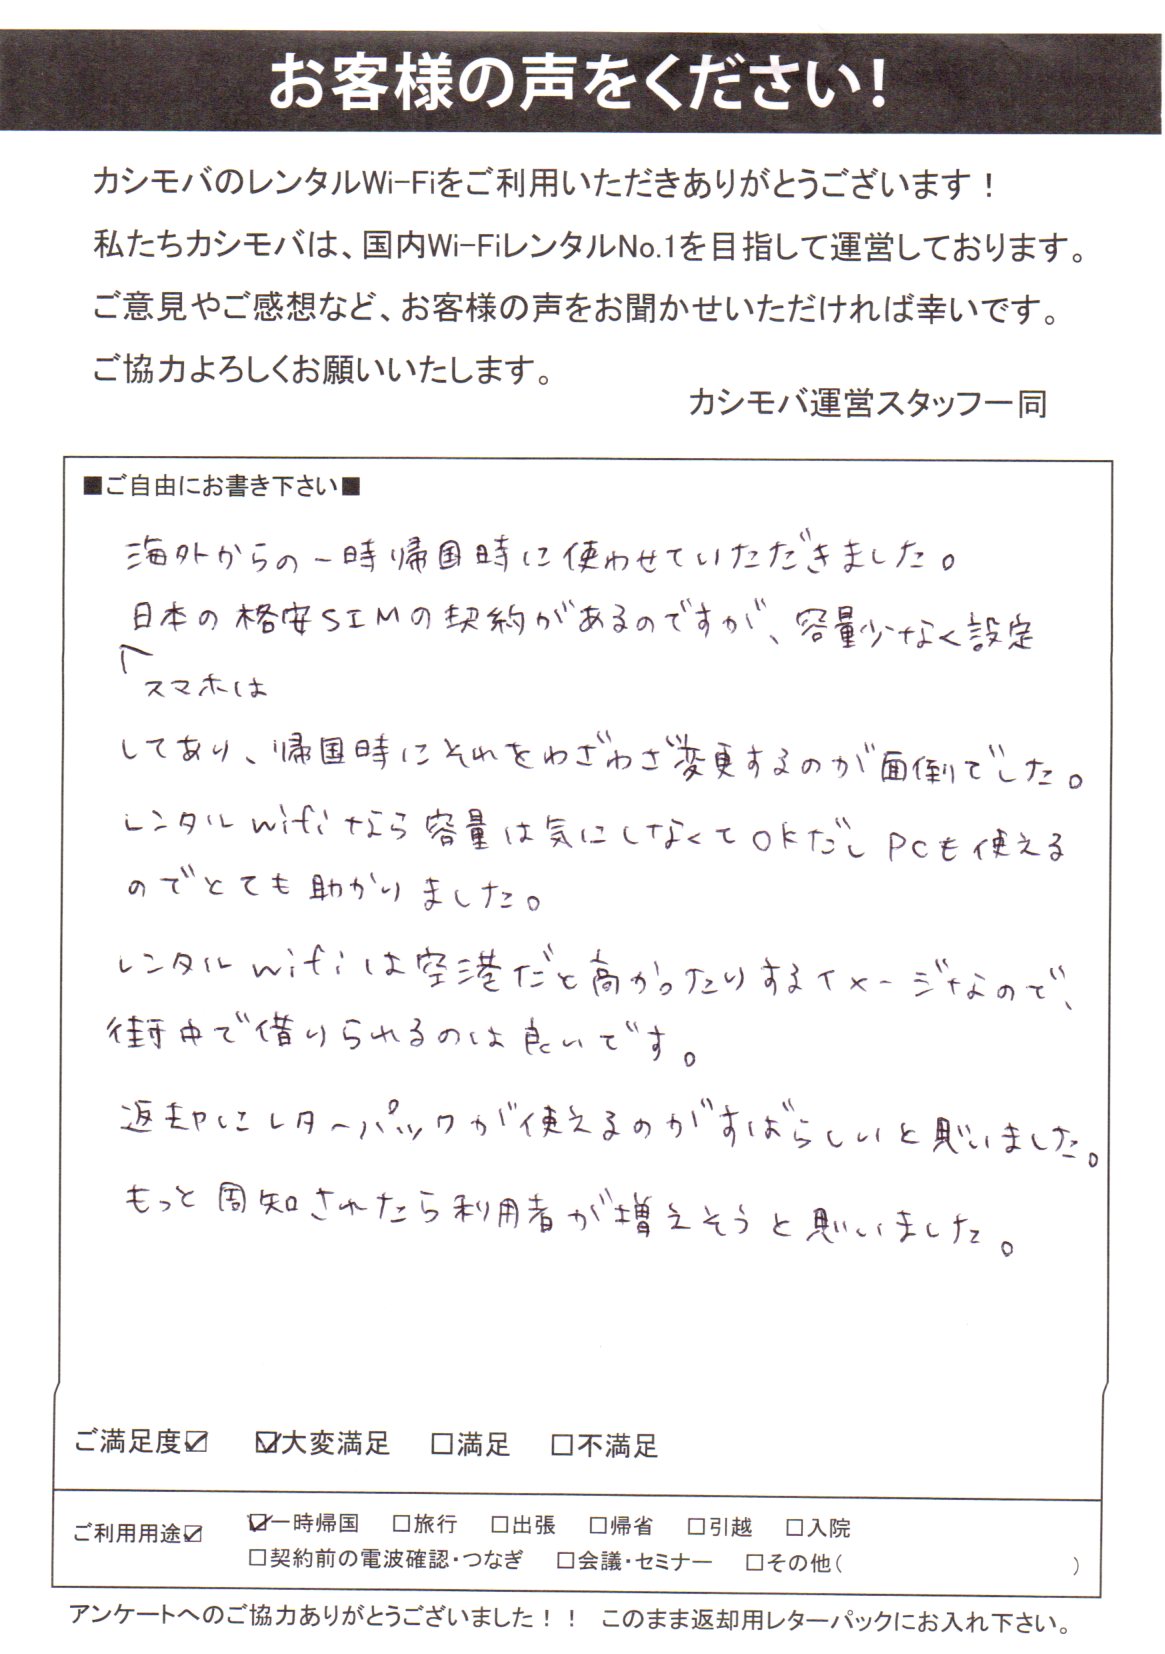 お客様の声をください!
カシモバのレンタルWi-Fiをご利用いただきありがとうございます!
私たちカシモバは、国内Wi-FiレンタルNo.1を目指して運営しております。
ご意見やご感想など、お客様の声をお聞かせいただければ幸いです。
ご協力よろしくお願いいたします。
カシモバ運営スタッフ一同
■ご自由にお書き下さい■
海外からの一時帰国時に使わせていただきました。
日本の格安SIMの契約があるのですが、容量少なく設定
スマホは
してあり、帰国時にそれをわざわざ変更するのが面倒でした。
レンタルwifiなら容量は気にしなくてOKだしPCも使える
のでとても助かりました。
レンタルwifiは空港だと高かったりするイメージなので、
街中で借りられるのは良いです。
返却にレターパックが使えるのがすばらしいと思いました。
もっと周知されたら利用者が増えそうと思いました。
ご満足度☑ ☑大変満足 □満足 □不満足
ご利用用途☑ ☑一時帰国 □旅行 □出張 □帰省 □引越 □入院
□契約前の電波確認・つなぎ □会議・セミナー □その他( )
アンケートへのご協力ありがとうございました!! このまま返却用レターパックにお入れ下さい。